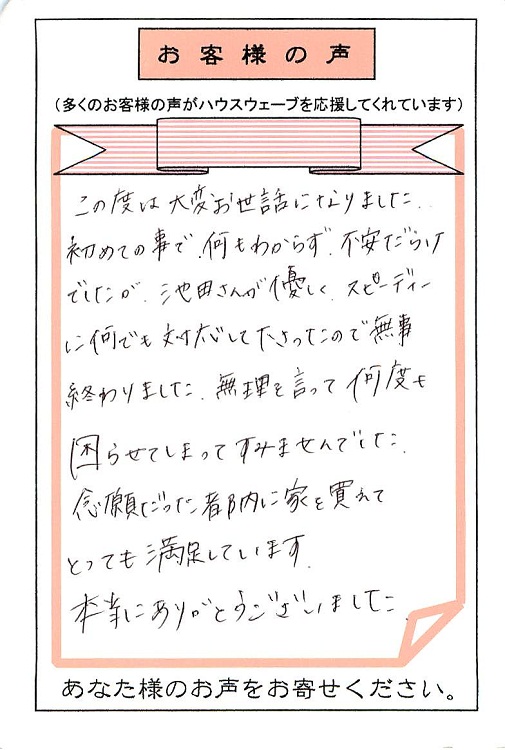 お客様の声
（多くのお客様の声がハウスウェーブを応援してくれています）
この度は大変お世話になりました。
初めての事で、何もわからず、不安だらけ
でしたが、池田さんが優しく、スピーディー
に何でも対応して下さったので無事
終わりました。無理を言って何度も
困らせてしまってすみませんでした。
念願だった都内に家を買えて
とっても満足しています。
本当にありがとうございました
あなた様のお声をお寄せください。